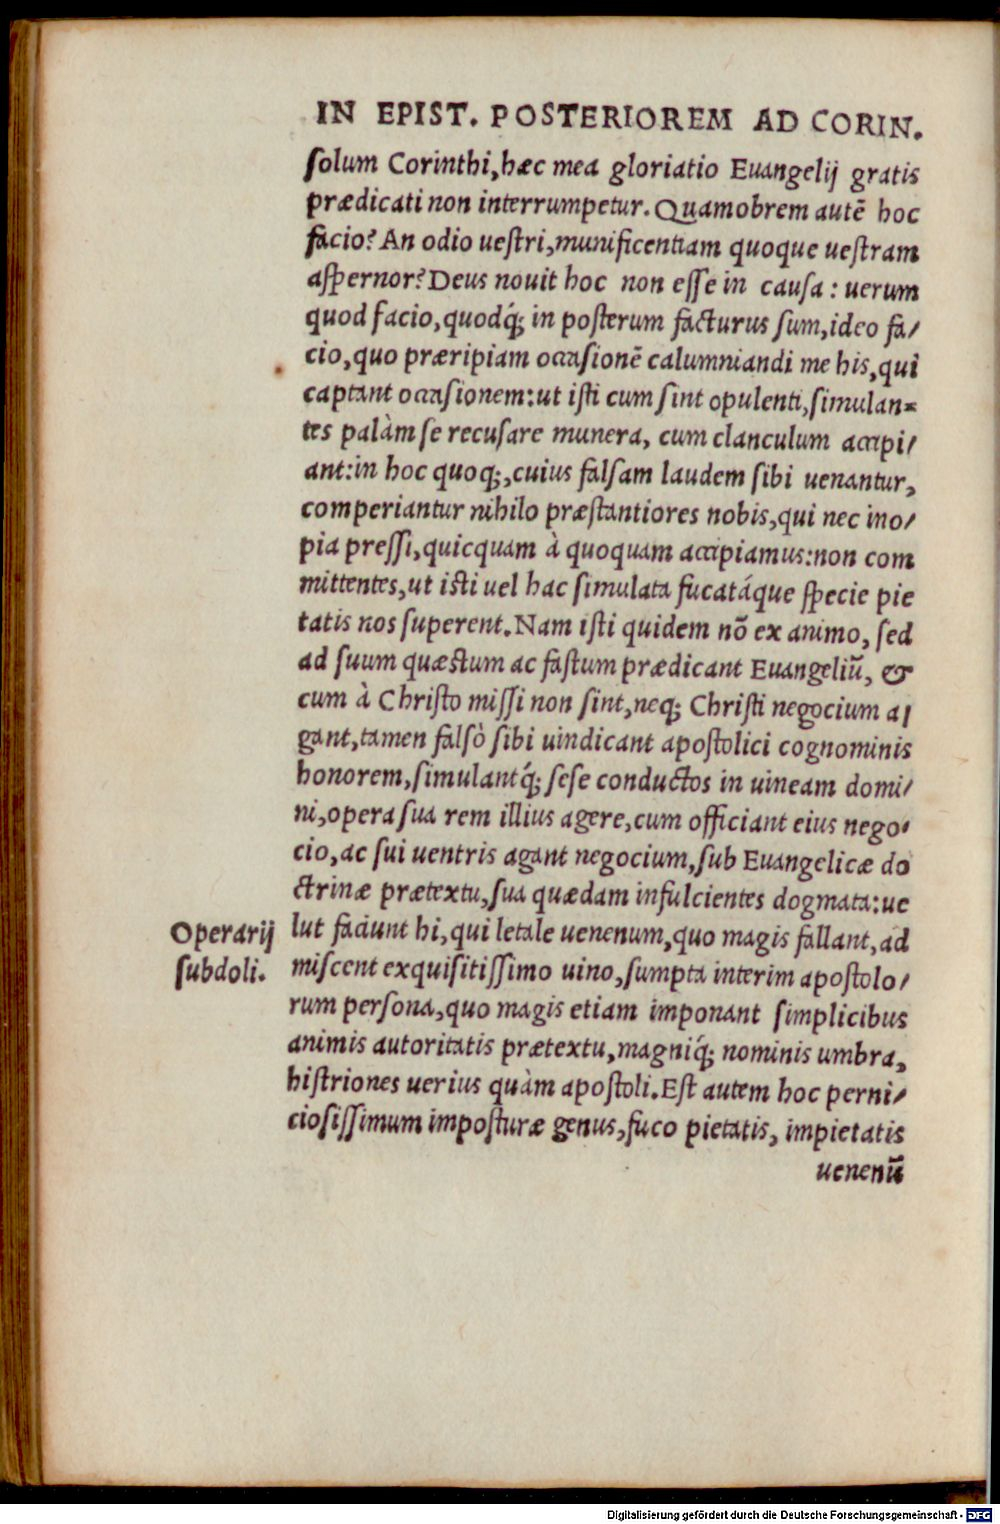 IN EPIST. POSTERIOREM AD CORIN.
solum Corinthi, hæc mea gloriatio Euangelij gratis
prædicati non interrumpetur. Quamobrem autē hoc
facio? An odio uestri, munificentiam quoque uestram
aspernor? Deus nouit hoc non esse in causa: uerum
quod facio, quodq́; in posterum facturus sum, ideo fa/
cio, quo præripiam occasionē calumniandi me his, qui
captant occasionem: ut isti cum sint opulenti, simulan=
tes palàm se recusare munera, cum clanculum accipi/
ant: in hoc quoq;, cuius falsam laudem sibi uenantur,
comperiantur nihilo præstantiores nobis, qui nec ino/
pia pressi, quicquam à quoquam accipiamus: non com
mittentes, ut isti uel hac simulata fucatáque specie pie
tatis nos superent. Nam isti quidem nō ex animo, sed
ad suum quæstum ac fastum prædicant Euangeliū, &
cum à Christo missi non sint, neq; Christi negocium a/
gant, tamen falsò sibi uindicant apostolici cognominis
honorem, simulantq́; sese conductos in uineam domi/
ni, opera sua rem illius agere, cum officiant eius nego/
cio, ac sui uentris agant negocium, sub Euangelicæ do
ctrinæ prætextu, sua quædam infulcientes dogmata: ue
Operarij
subdoli.
lut faciunt hi, qui letale uenenum, quo magis fallant, ad
miscent exquisitissimo uino, sumpta interim apostolo/
rum persona, quo magis etiam imponant simplicibus
animis autoritatis prætextu, magniq́; nominis umbra,
histriones uerius quàm apostoli. Est autem hoc perni/
ciosissimum imposturæ genus, fuco pietatis, impietatis
uenenū
Digitalisierung gefördert durch die Deutsche Forschungsgemeinschaft - DFG